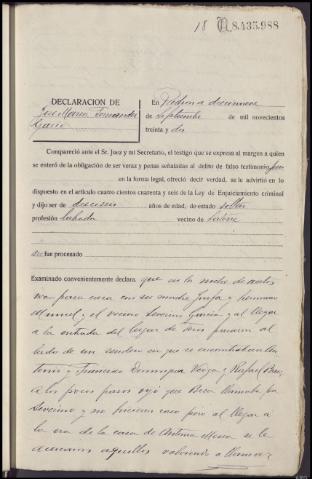 18 8.435.988
DECLARACION DE
José María Fernández
García
En Padrón a diecinueve
de Septiembre de mil novecientos
treinta y dos
Compareció ante el Sr. Juez y mi Secretario, el testigo que se expresa al margen a quien
se enteró de la obligación de ser veraz y penas señaladas al delito de falso testimonio
en la forma legal, ofreció decir verdad, se le advirtió en lo
dispuesto en el artículo cuatro cientos cuarenta y seis de la Ley de Enjuiciamiento criminal
y dijo ser de años de edad, de estado soltero
profesión vecino de
no fue procesado
Examinado convenientemente declara que en la noche de autos
iva para casa con su madre Josefa y hermano
Manuel, y el vecino Severino García y al llegar
a la entrada del lugar de pasaron al
lado de un sendero en que se encontraban An
tonio y Francisco Dominguez y Rafael
a los pocos pasos oyó que
Severino y no hicieron caso pero al llegar a
la era de la casa de se le
acercaron aquellos volviendo a